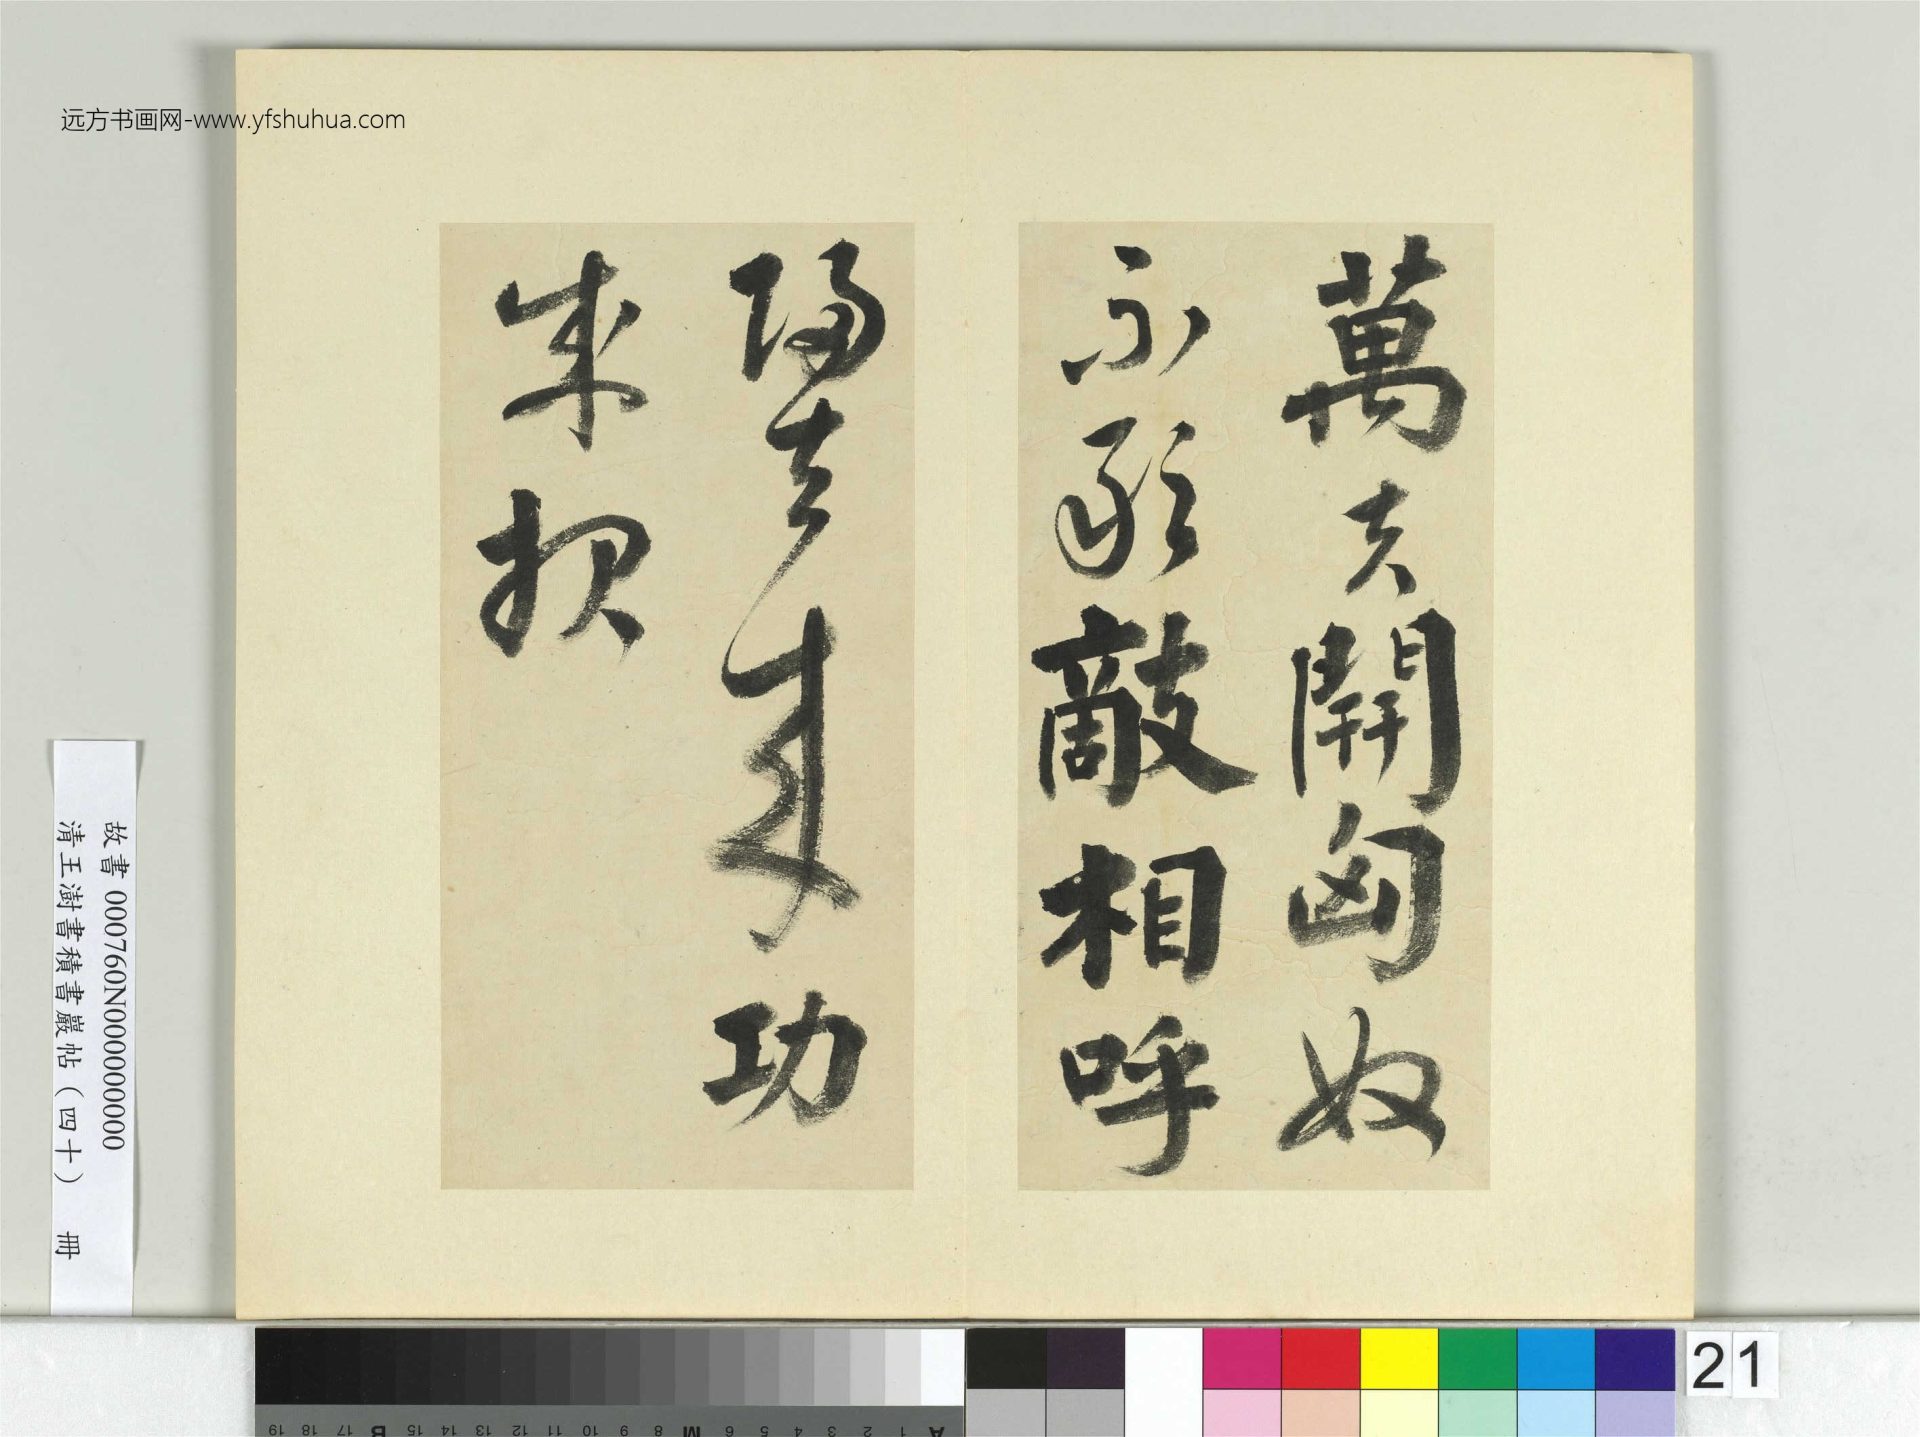 萬夫開匈奴
不敢敵相呼
歸去來功
成報
远方书画网-www.yfshuhua.com
故書 000760N000000000
清王澍書積書巖帖（四十） 冊
21
A 1 2 3 4 5 6 M 8 9 10 11 12 13 14 15 B 17 18 19